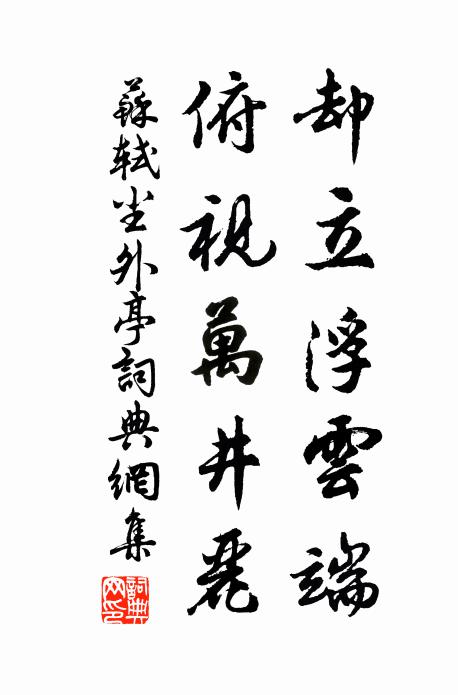 却立浮雲端
俯視萬井麗
蘇軾尘外亭詞典網集